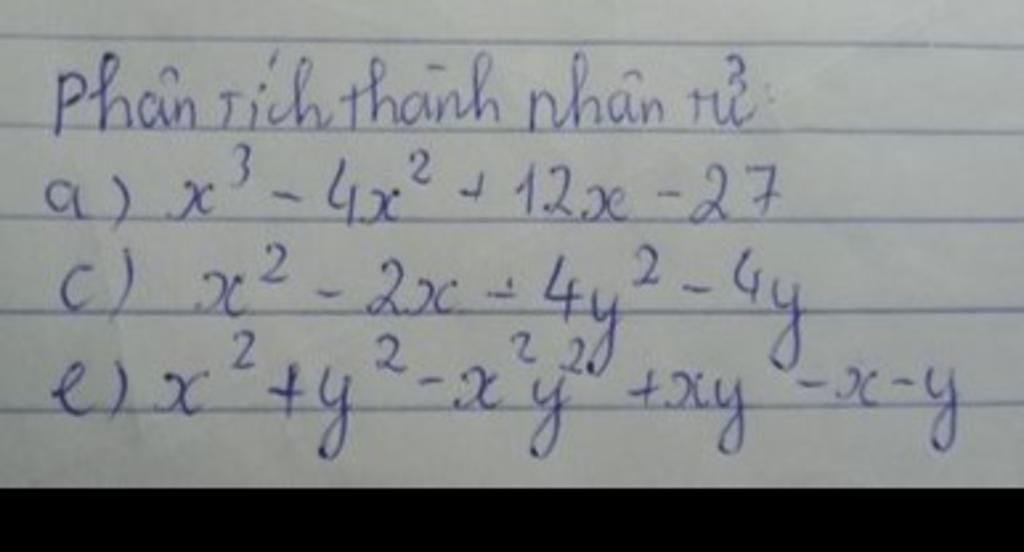 Phân tích thành nhân tử:
a) x³ - 4x² + 12x - 27
c) x² - 2x - 4y² - 4y
e) x² + y² - x²y² + xy - x - y